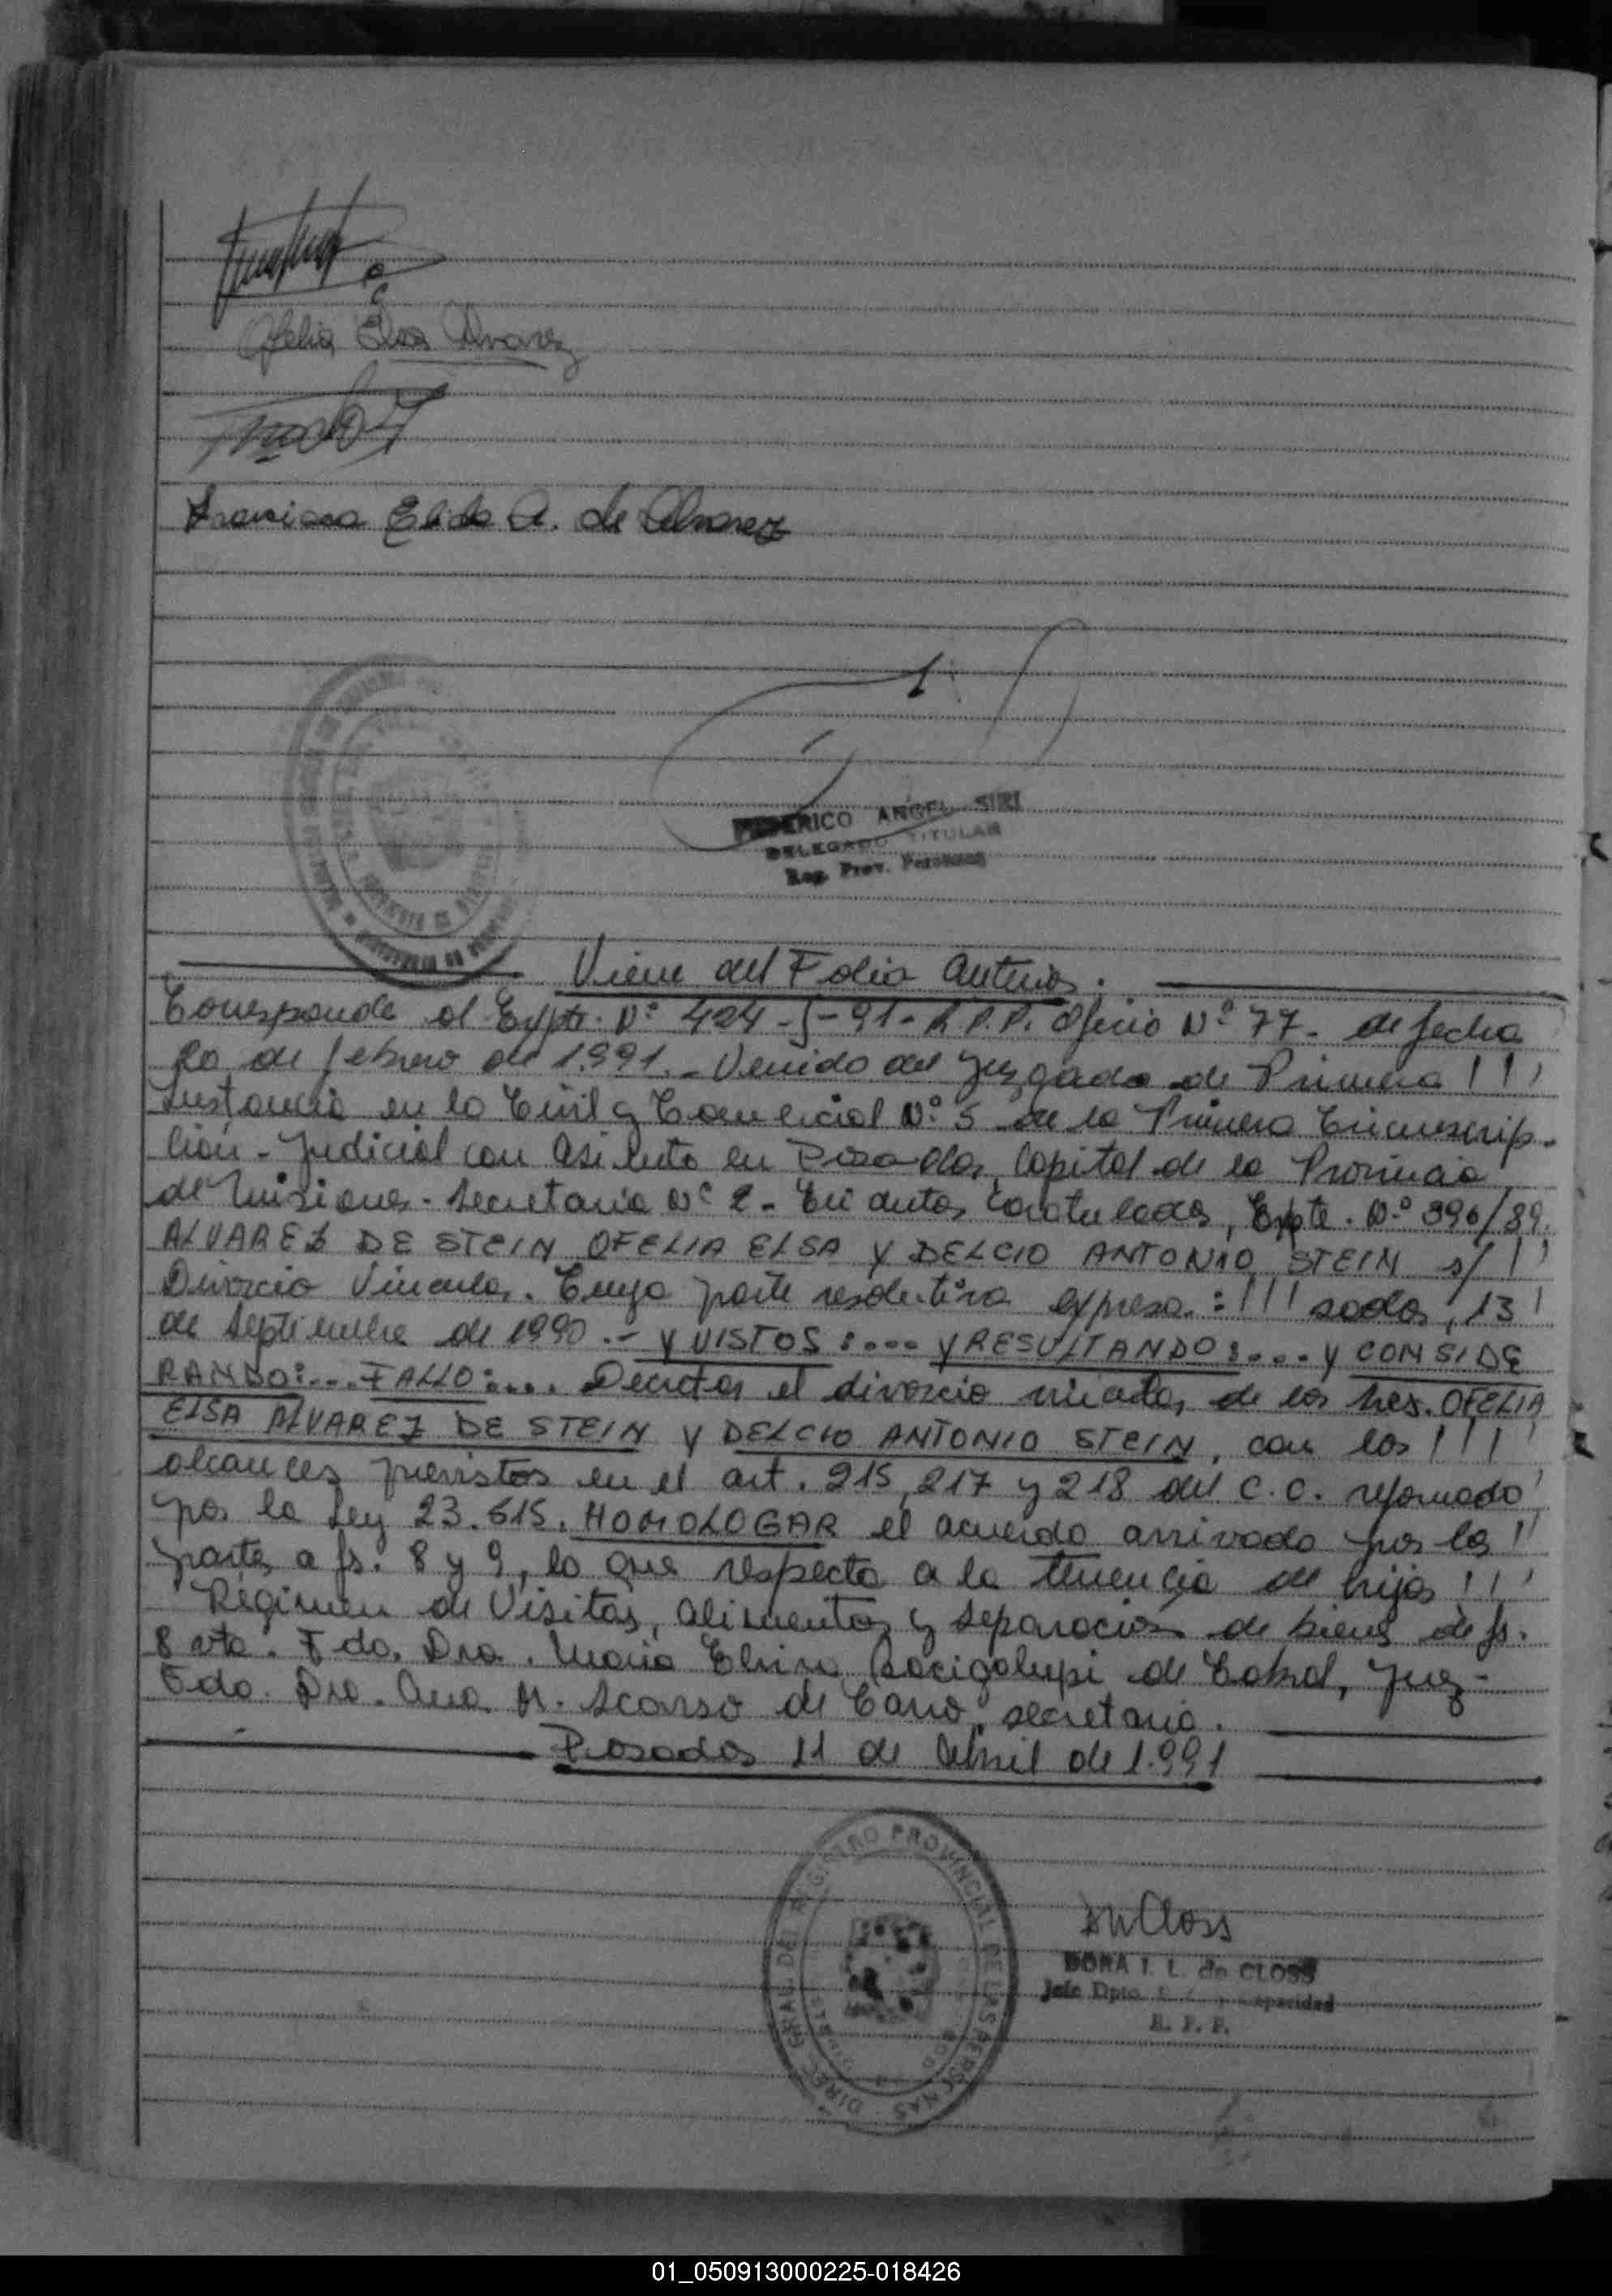 Ofelia Elsa Alvarez
Francisca Elida A. de Alvarez
FEDERICO ANGEL SIRI
DELEGADO TITULAR
Reg. Prov. Personas
Viene del Folio anterior.
Corresponde al Expte. Nº 424-S-91- R.P.P. Oficio Nº 77- de fecha
20 de febrero de 1.991.- Venido del Juzgado de Primera !!!
Instancia en lo Civil y Comercial Nº 5 de la Primera Circunscrip-
ción - Judicial con asiento en Posadas, Capital de la Provincia
de Misiones - Secretaria Nº 2 - En autos caratulados, Expte. Nº 390/89.
ALVAREZ DE STEIN OFELIA ELSA Y DELCIO ANTONIO STEIN s/ !!
Divorcio Vincular. Cuya parte resolutiva expresa: !!! sadas, 13 !
de Septiembre de 1990.- Y VISTOS:.... Y RESULTANDO:.... Y CONSIDE
RANDO:... FALLO:.... Decretar el divorcio vincular, de los Sres. OFELIA
ELSA ALVAREZ DE STEIN Y DELCIO ANTONIO STEIN, con los !!!!
alcances previstos en el art. 215, 217 y 218 del C.C. reformado !
por la Ley 23.515. HOMOLOGAR el acuerdo arrivado por las !!
partes a fs. 8 y 9, lo que respecta a la tenencia de hijos !!!
Régimen de Visitas, alimentos y separación de bienes de fs.
8 vta. Fdo. Dra. Maria Elvira Bacigalupi de Cabral, Juez-
Fdo. Dra. Ana M. Scarso de Cano, secretaria.
Posadas 11 de Abril de 1.991
DIREC. GRAL. DEL REGISTRO PROVINCIAL DE LAS PERSONAS
DMCloss
DORA I. L. de CLOSS
Jefe Dpto.
R. P. P.
01_050913000225-018426